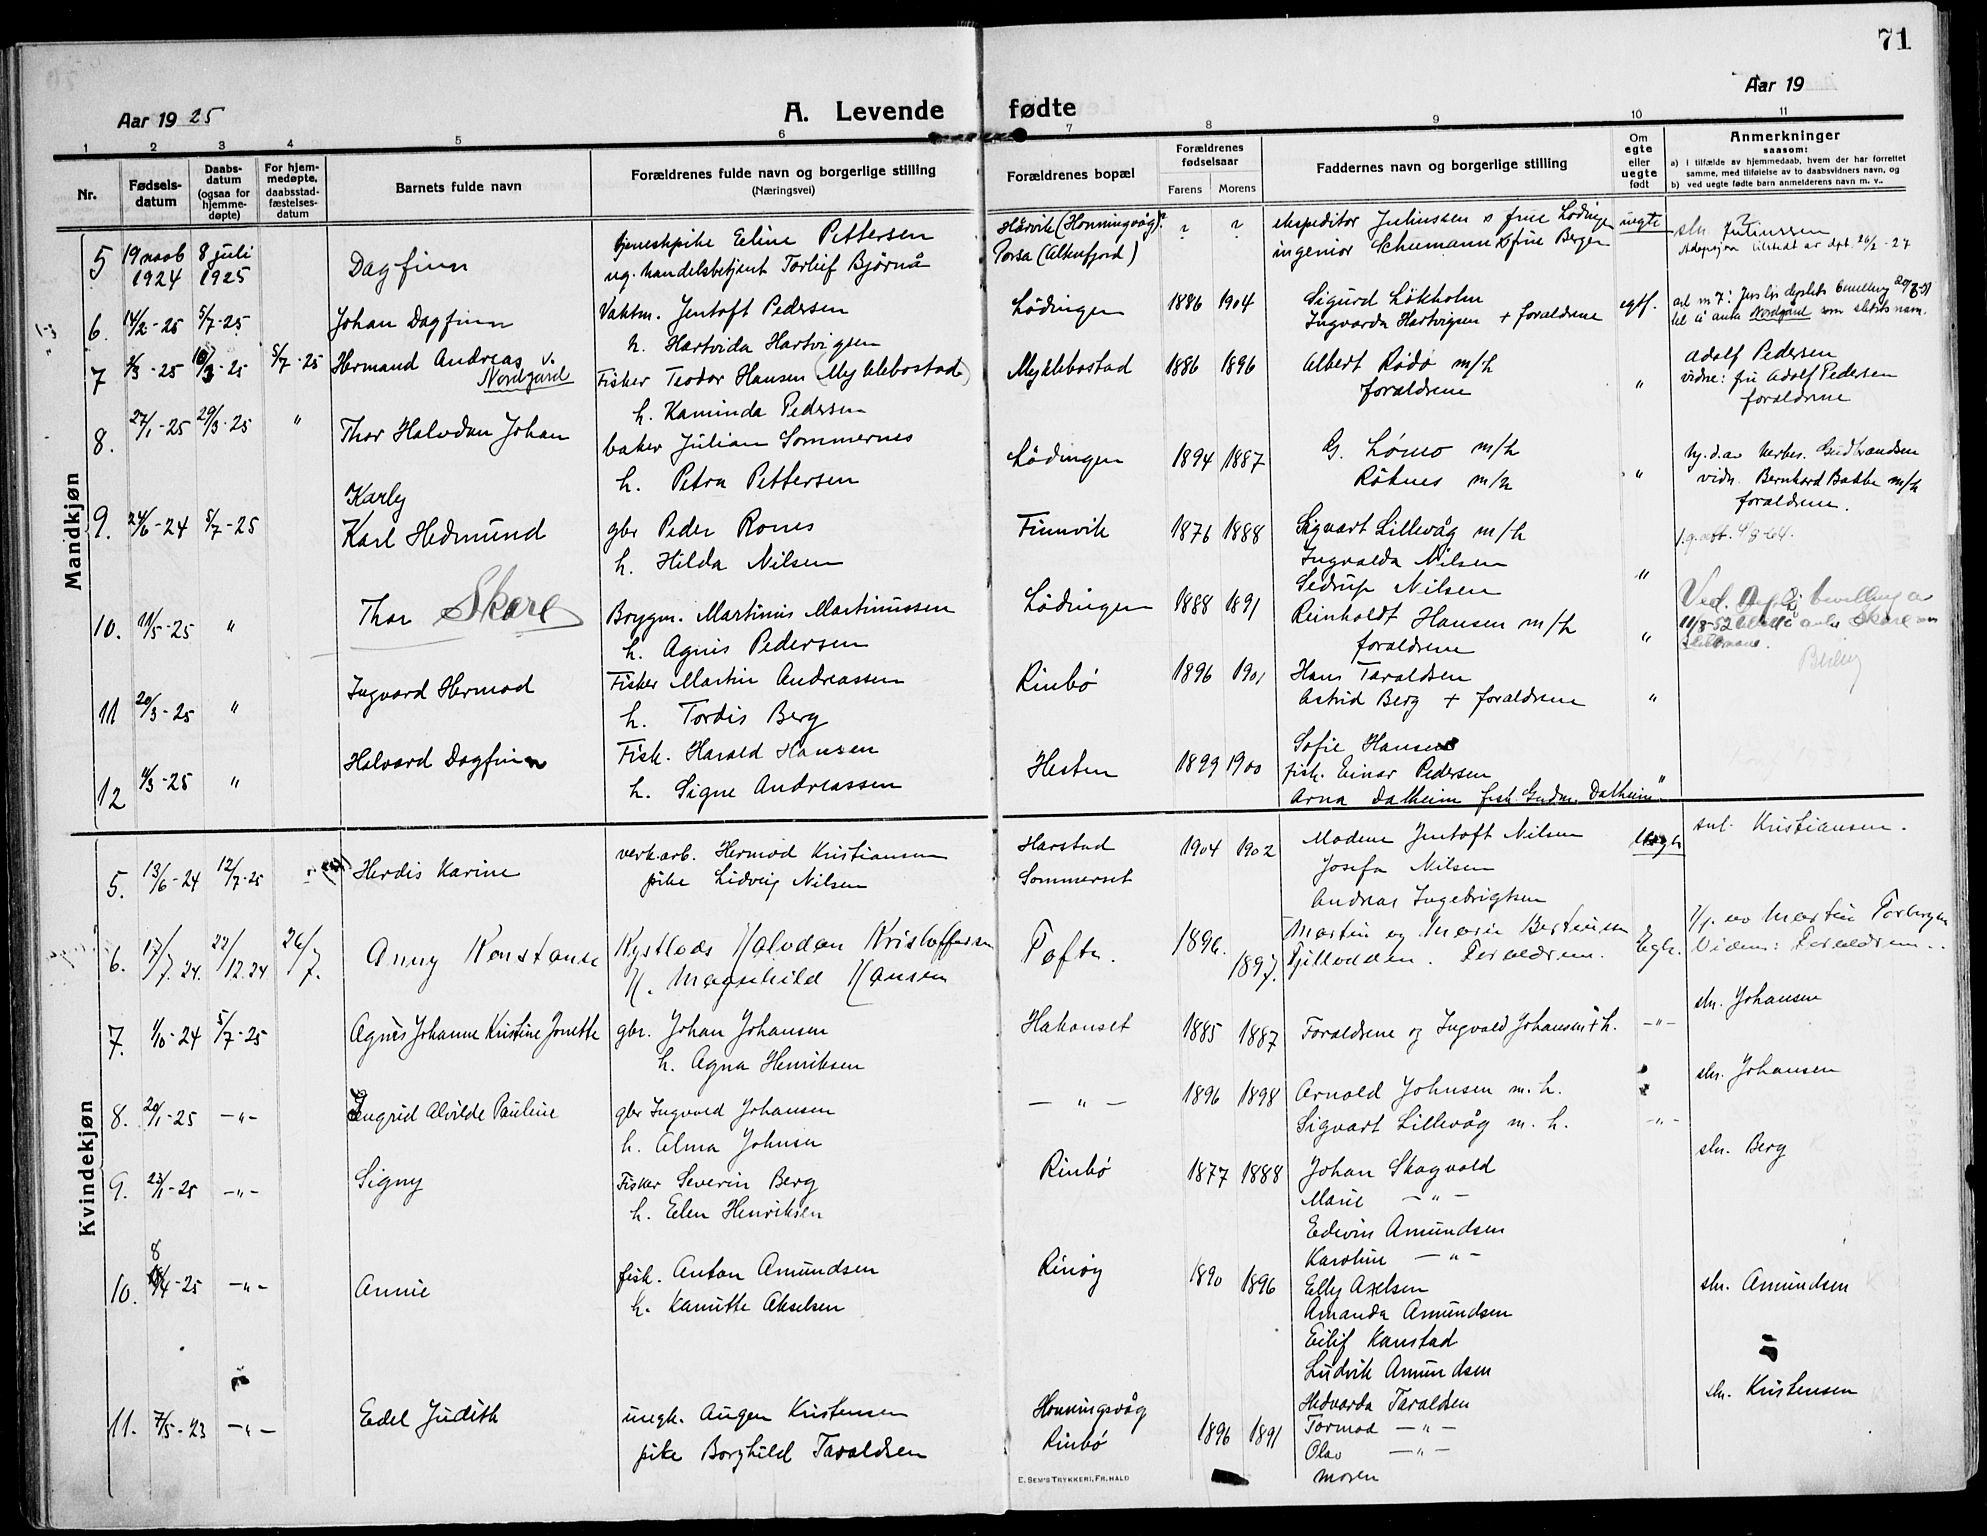 71
Aar 1925
A. Levende fødte
Aar 19
1 2 3 4 5 6 7 8 9 10 11
Nr.
Fødsels-datum
Daabs-datum (ogsaa for hjemme-døpte)
For hjem-medøpte, daabsstad-fæstelses-datum
Barnets fulde navn
Forældrenes fulde navn og borgerlige stilling
(Næringsvei)
Forældrenes bopæl
Forældrenes fødselsaar
Farens Morens
Faddernes navn og borgerlige stilling
Om egte eller uegte født
Anmerkninger
saasom:
a) i tilfælde av hjemmedaab, hvem der har forrettet samme, med tilføielse av to daabsvidners navn, og
b) ved uegte fødte barn anmelderens navn m. v..
Mandkjøn
5 19 novb 1924 8 juli 1925 Dagfinn
tjenestepike Eline Pettersen
ug. handelsbetjent Torleif Bjørnå
Hårvik (Honningsvåg)?
Porsa (Altenfjord)
? ?
ekspeditor Julinssen o frue Lødingen
ingeniør Schumann o frue Bergen
uegte
sln. Julinssen
6. 14/2-25 5/7-25 Johan Dagfinn
Vaktm. Jentoft Pedersen
h. Hartvida Hartvigsen
Lødingen 1886 1904
Sigurd Løkholm
Ingvarda Hartvigsen + forældrene
egtf.
7 3/3-25 5/7-25 Hermand Andreas
Nordgård
Fisker Teodor Hansen (Myklebostad)
h. Kaminda Pedersen
Myklebostad 1886 1896
Albert Rødø m/h
forældrene
"
Adolf Pedersen
vidne: fru Adolf Pedersen
forældrene
8. 27/1-25 29/3-25 " Thor Halvdan Johan
baker Julian Sommernes
h. Petra Pettersen
Lødingen 1894 1887
G. Lømo m/h
Røknes m/h
"
Gudbrandsen
vidn. Bernhard Bakke m/h
forældrene.
9. 24/6-24 5/7-25 Karly
Karl Hedmund
gbr Peder Rones
h. Hilda Nilsen
Finnvik 1876 1888
Sigvart Lillevåg m/h
Ingvalda Nilsen
Sedrup Nilsen
"
10. 11/5-25 " Thor Skare
Bryggm. Martinus Martinussen
h. Agnis Pedersen
Lødingen 1888 1891
Reinholdt Hansen m/h
forældrene
"
11 20/3-25 " Ingvard Hermod
Fisker Martin Andreassen
h. Tordis Berg
Rinbø 1896 1901
Hans Taraldsen
Astrid Berg + forældrene
"
12 4/3-25 " Halvard Dagfinn
Fisk. Harald Hansen
h. Signe Andreassen
Hesten 1899 1900
Sofie Hansen
fisk. Einar Pedersen
Arna Dalheim fisk. Gudm. Dalheim
"
Kvindekjøn
5. 13/6-24 12/7-25 Herdis Karine
verk.arb. Hermod Kristiansen
pike Lidveig Nilsen
Harstad
Sommerset
1904 1902
Madene Jentoft Nilsen
Josefa Nilsen
Andreas Ingebrigtsen
Uegte
snl. Kristiansen.
6. 17/7.24. 22/12.24 26/7. Anny Konstanse
Kystlods Halvdan Kristoffersen
H. Magnhild Hansen
Tofte. 1896. 1897.
Martin og Marie Bertinsen
Fjelldalen. Forældrene.
Egte.
H/. av Martin Torbergsen
Vidne: Forældrene.
7. 1/10-24 5/7-25 Agnes Johanne Kristine Jonette
gbr. Johan Johansen
h. Agna Henriksen
Hakonset 1885 1887
Forældrene og Ingvald Johansen + h.
-"-
sln. Johansen
8. 20/1-25 -"- Ingrid Alvilde Pauline
gbr Ingvald Johansen
h. Alma Johnsen
-"- 1896 1898
Arnold Johnsen m. h.
Sigvart Lillevåg m. h.
-"-
sln. Johansen
9. 23/1-25 -"- Signy
Fisker Severin Berg
h. Elen Henriksen
Rinbø 1877 1888
Johan Skogvold
Marie -"-
Edwin Amundsen
Karoline -"-
sln. Berg
10. 8/4-25 -"- Annie
fisk. Anton Amundsen
h. Kamitte Akselsen
Rinøy 1890 1896
Elly Axelsen
Amanda Amundsen
Eilif Kanstad
Ludvik Amundsen
sln. Amundsen
11. 7/5-23 -"- Edel Judith
ungk. Augen Kristensen
pike Borghild Taraldsen
Honningsvåg
Rinbø
1896 1891
Hedvarda Taraldsen
Tormod -"-
Olav -"-
moren
sln. Kristensen
E. SEM'S TRYKKERI, FR.HALD